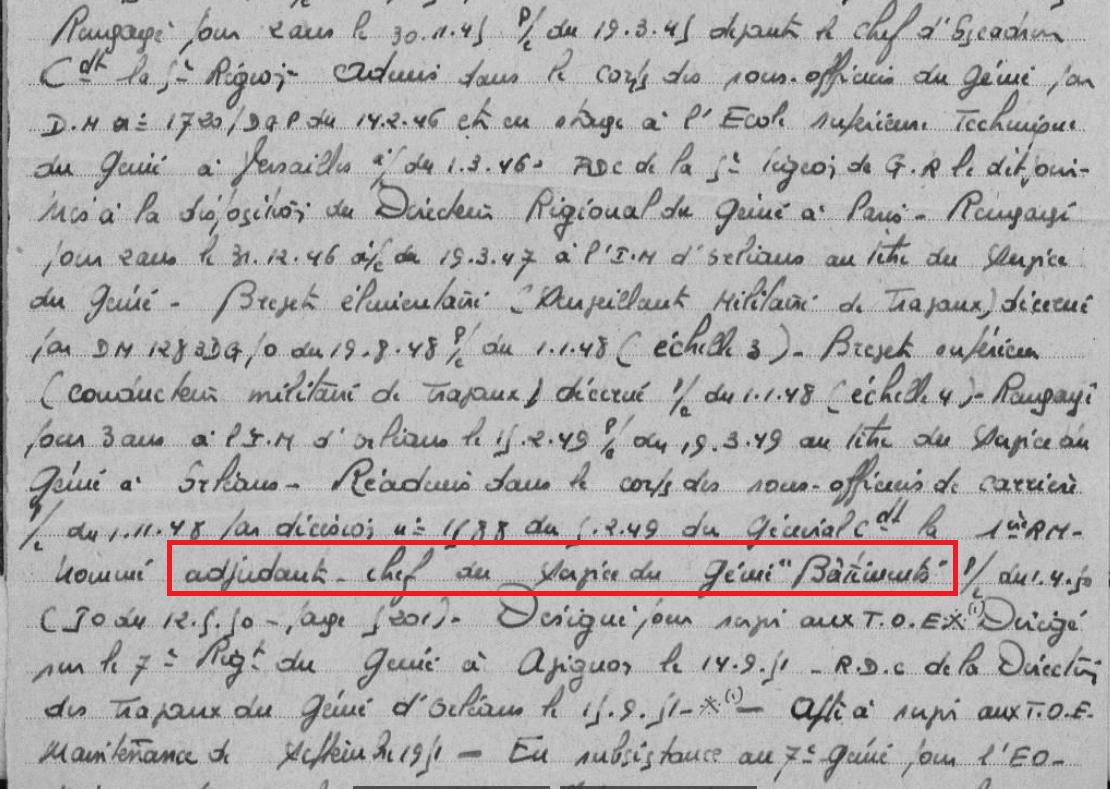 Rengagé pour 2 ans le 30.11.45 p/c du 19.3.45 devant le chef d'Escadron
Cdt la 5e Région - Admis dans le corps des sous-officiers du Génie par
D.M n= 1720/DGP du 14.2.46 et en stage à l'Ecole supérieure Technique
du Génie à Versailles p/c du 1.3.46 - RDC de la 5e Région de G.R le dit jour -
Mis à la disposition du Directeur Régional du Génie à Paris - Rengagé
pour 2 ans le 31.12.46 p/c du 19.3.47 à l'I.M d'Orléans au titre du Service
du Génie - Brevet élémentaire (Surveillant Militaire de Travaux) décerné
par DM 1283DG/O du 19.8.48 p/c du 1.1.48 (échelle 3) - Brevet supérieur
(conducteur militaire de Travaux) décerné p/c du 1.1.48 (échelle 4) - Rengagé
pour 3 ans à l'I.M d'Orléans le 15.2.49 p/c du 19.3.49 au titre du Service du
Génie à Orléans - Réadmis dans le corps des sous-officiers de carrière
p/c du 1.11.48 par décision n= 1588 du 5.2.49 du Général Cdt la 1ère RM -
Nommé adjudant-chef du Service du Génie "Bâtiments" p/c du 1.4.50
(JO du 12.5.50 - page 5201) - Désigné pour servir aux T.O.E ※(1) Dirigé
sur le 7e Régt du Génie à Avignon le 14.9.51 - R.D.C de la Direction
des Travaux du Génie d'Orléans le 15.9.51 - ※(1) - Affté à servir aux T.O.E.
Maintenance de Septembre 1951 - En subsistance au 7e Génie pour l'EO-